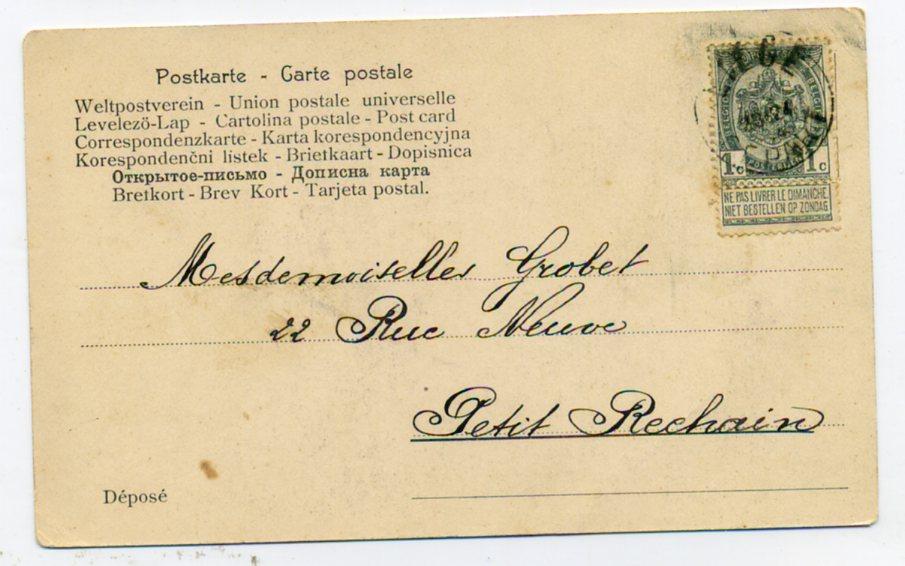 Postkarte - Carte postale
Weltpostverein - Union postale universelle
Levelező-Lap - Cartolina postale - Post card
Correspondenzkarte - Karta korespondencyjna
Korespondenční listek - Brietkaart - Dopisnica
Открытое-письмо - Дописна карта
Bretkort - Brev Kort - Tarjeta postal.
1c 1c
NE PAS LIVRER LE DIMANCHE
NIET BESTELLEN OP ZONDAG
Mesdemoiselles Grobet
22 Rue Neuve
Petit Rechain
Déposé